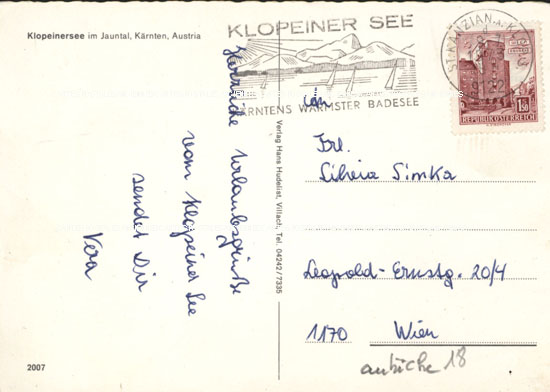 Klopeinersee im Jauntal, Kärnten, Austria
KLOPEINER SEE
KÄRNTENS WÄRMSTER BADESEE
ST. KANZIAN a. K.
1.50
REPUBLIK ÖSTERREICH
Herzliche Urlaubsgrüße
vom Klopeiner See
sendet Dir
Vera
Verlag Hans Hudelist, Villach, Tel. 04242/7335
An
Frl.
Silvia Simka
Leopold-Ernstg. 20/4
1170 Wien
2007
18